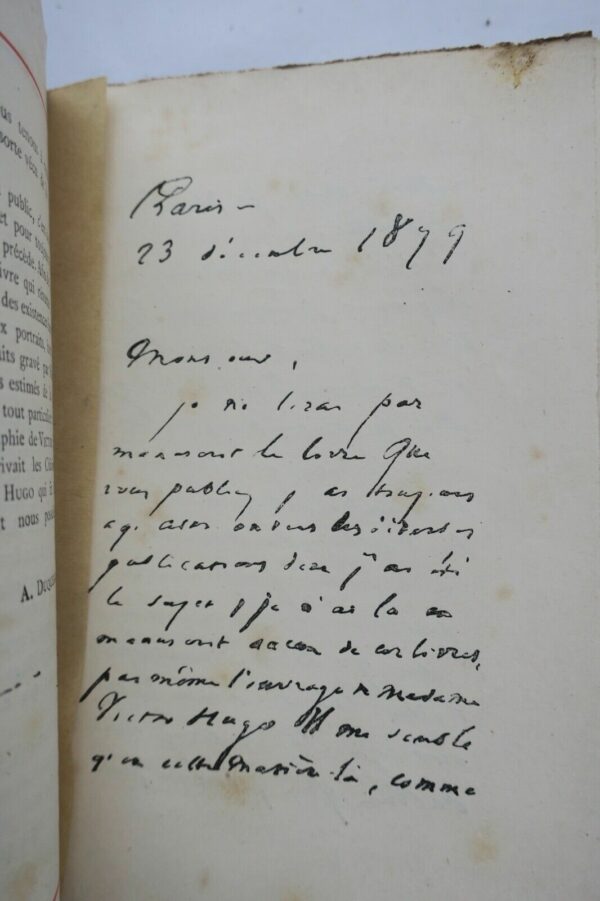 public,
et pour
précède,
ivre qui
des existences
x portraits,
uits gravé
s estimés de
tout
phie de
ivait les
HUGO qui
t nous
A.
Paris –
23 décembre 1879
Monsieur,
je ne lirai pas
manuscrit le livre que
vous publiez, j'ai toujours
agi ainsi envers les diverses
publications dont j'ai été
le sujet, je n'ai lu en
manuscrit aucun de ces livres,
pas même l'ouvrage de Madame
Victor Hugo Il me semble
qu'en cette matière-là, comme